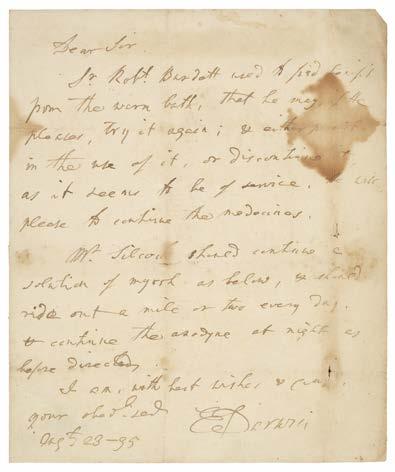 Dear Sir.
Sr. Robt. Burdett used to find
from the warm bath, that he may, if he
pleases, try it again; & either
in the use of it, or discontinue
as it seems to be of service.
please to continue the medecines.
Mr. Silcock should continue
solution of myrrh as below, & should
ride out a mile or two every day.
& continue the anodyne at night as
before directed.
I am, with best wishes &
your obed. serv.
E Darwin
Augt 23-95